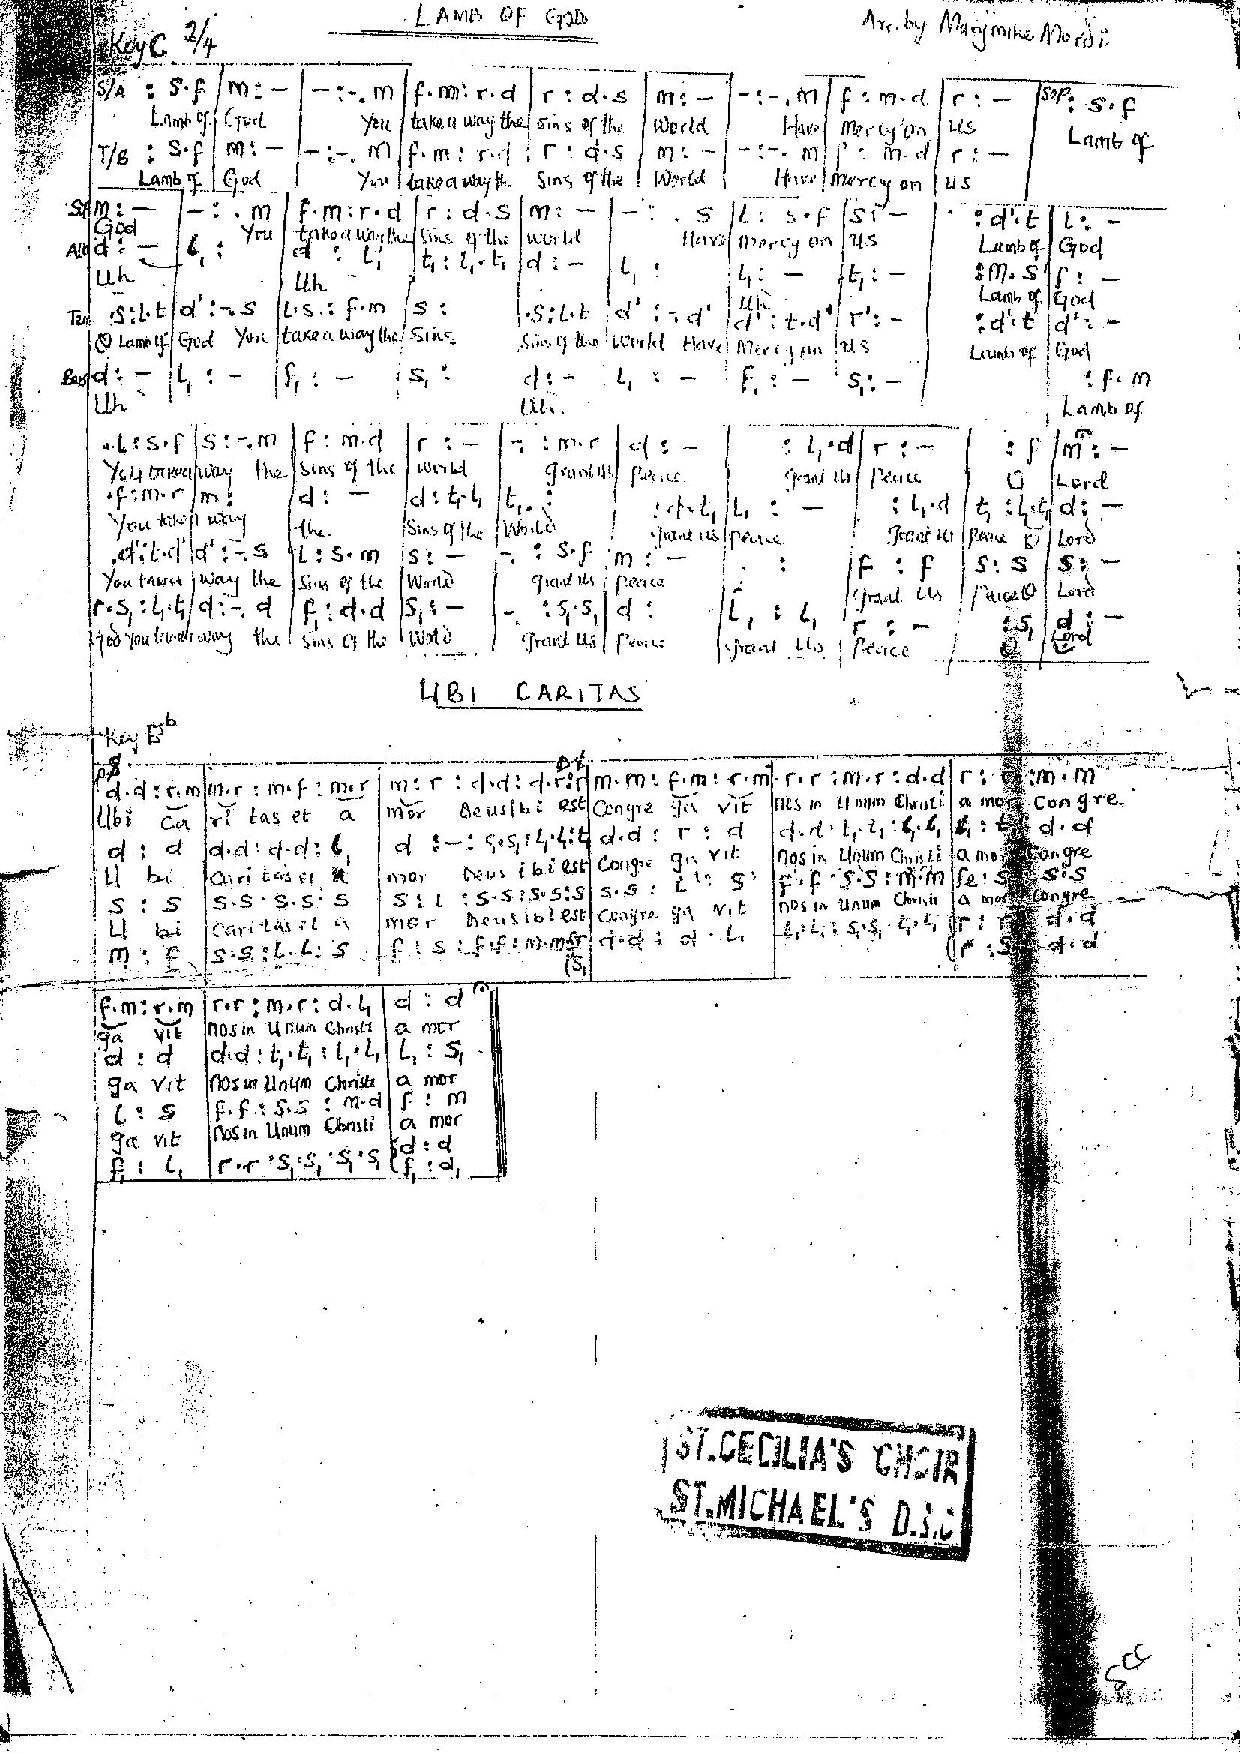 LAMB OF GOD
Key C 2/4
Arr. by Marymike
S/A : s.f | m : - | - : - . m | f.m : r.d | r : d.s | m : - | - : - . m | f : m.d | r : - | Sop : s.f
Lamb of | God | You | take a way the | Sins of the | World | Have | Mercy on | us | Lamb of
T/B : s.f | m : - | - : - . m | f.m : r.d | r : d.s | m : - | - : - . m | f : m.d | r : -
Lamb of | God | You | take a way the | Sins of the | World | Have | Mercy on | us
m : - | - : . m | f.m : r.d | r : d.s | m : - | - : . s | L : s.f | s : - | : d'.t | L : -
God | You | take a way the | Sins of the | World | Have | Mercy on | us | Lamb of | God
d : - | L₁ : | d : L₁ | t₁ : L₁.t₁ | d : - | L₁ : | L₁ : - | t₁ : - | : m.s | f : -
Uh | Uh | Uh | Lamb of | God
Ten . s : L.t | d' : - . s | L.s : f.m | s : | . s : L.t | d' : - . d' | d' : t.d' | r' : - | : d'.t | d' : -
Lamb of | God You | take a way the | Sins | Sins of the | World Have | Mercy on | us | Lamb of | God
Bass d : - | L₁ : - | f₁ : - | s₁ : | d : - | L₁ : - | f₁ : - | s₁ : - | : f.m
Uh | Uh. | Lamb of
. L : s.f | s : - . m | f : m.d | r : - | - : m.r | d : - | : L₁.d | r : - | : f | m : -
You takea | way the | Sins of the | World | grant us | peace | grant us | peace | O | Lord
. f : m.r | m : | d : - | d : t₁.L₁ | t₁ : | : d.L₁ | L₁ : - | : L₁.d | t₁ : L₁.t₁ | d : -
You takea | way | the | Sins of the | World | grant us | peace | grant us | peace O | Lord
. d' : t.d' | d' : - . s | L : s.m | s : - | - : s.f | m : - | : | f : f | s : s | s : -
You takea | way the | Sins of the | World | grant us | peace | grant us | peace O | Lord
r.s₁ : L₁.t₁ | d : - . d | f₁ : d.d | s₁ : - | - : s₁.s₁ | d : | L₁ : L₁ | r : - | : s₁ | d : -
God you takea | way the | Sins of the | World | grant us | peace | grant us | peace | Lord
UBI CARITAS
Key Eb
d.d : r.m | m.r : m.f : m.r | m : r : d.d : d.r : r | m.m : f.m : r.m | r.r : m.r : d.d | r : : m.m
Ubi ca | ri tas et a | mor Deus ibi est | Congre ga vit | nos in Unum Christi | a mor Congre
d : d | d.d : d.d : L₁ | d : - : s₁.s₁ : L₁.L₁ : t₁ | d.d : r : d | d.d : L₁.L₁ : L₁.L₁ | : d.d
U bi | Caritas et a | mor Deus ibi est | Congre ga vit | nos in Unum Christi | a mor Congre
s : s | s.s : s.s : s | s : L : s.s : s.s : s | s.s : L : s | f.f : s.s : m.m | fe : s : s.s
U bi | Caritas et a | mor Deus ibi est | Congre ga vit | nos in Unum Christi | a mor Congre
m : f | s.s : L.L : s | f : s : f.f : m.m : r | d.d : d.L₁ | L₁.L₁ : s₁.s₁ : L₁.L₁ | r : : d.d
f.m : r.m | r.r : m.r : d.L₁ | d : d
ga vit | nos in Unum Christi | a mor
d : d | d.d : t₁.t₁ : L₁.L₁ | L₁ : s₁
ga vit | nos in Unum Christi | a mor
L : s | f.f : s.s : m.d | f : m
ga vit | nos in Unum Christi | a mor
f₁ : L₁ | r.r : s₁.s₁ : s₁.s₁ | d : d
f₁ : d₁
ST. CECILIA'S CHOIR
ST. MICHAEL'S D.S.C
SCC